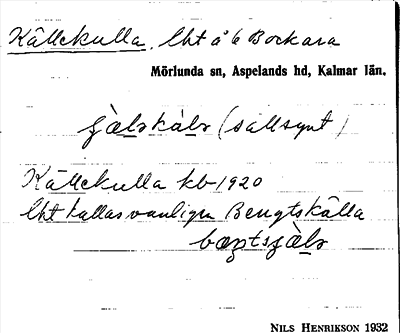 Källekulla, lht å 6 Bockara
Mörlunda sn, Aspelands hd, Kalmar län.
(sällsynt)
Källekulla kb 1920
lht kallas vanligen Bengtskälla
NILS HENRIKSON 1932